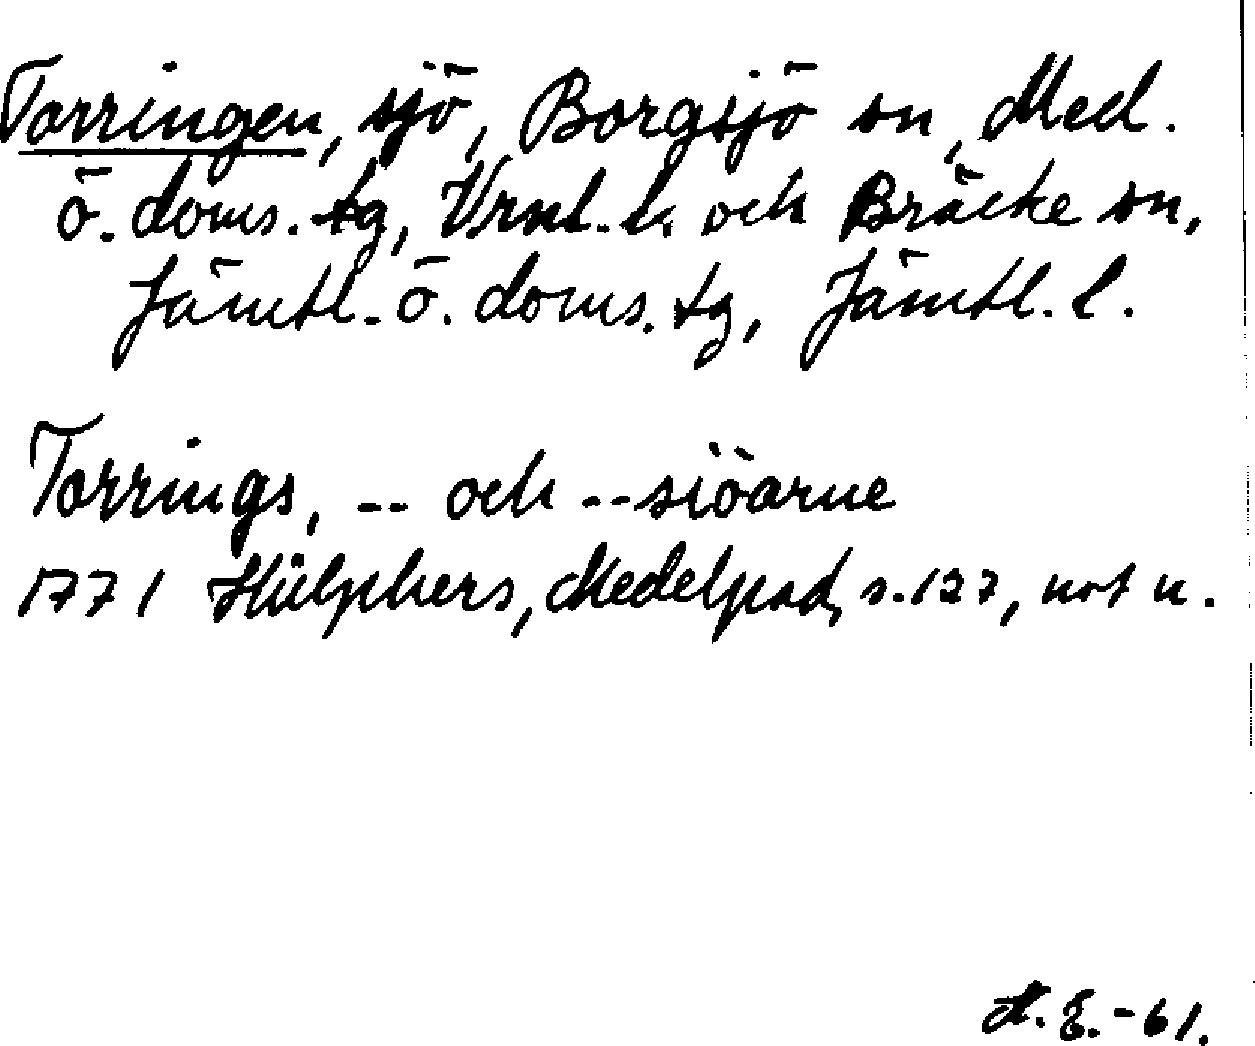 Torringen, sjö, Borgsjö sn, Med.
ö. doms. tg, Vrnl. l. och Bräcke sn,
Jämtl. ö. doms. tg, Jämtl. l.
Torrings, -- och --siöarne
1771 Hülphers, Medelpad, s. 127, not u.
A. E. -61.